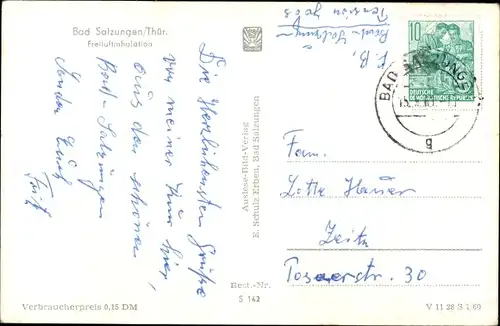 Bad Salzungen/Thür.
Freiluftinhalation
Die Herzlichensten Grüße
von meiner Kur hier
aus den schönen
Bad-Salzungen
sendet Euch
Fritz
Auslese-Bild-Verlag
E. Schulz Erben, Bad Salzungen
Best.-Nr.
S 142
Verbraucherpreis 0,15 DM
Bad-Salzungen
Pension
10
DEUTSCHE
DEMOKRATISCHE REPUBLIK
BAD SALZUNGEN
g
Fam.
Lotte Hauer
Zeitz
Posaerstr. 30
V 11 28 S 1/60